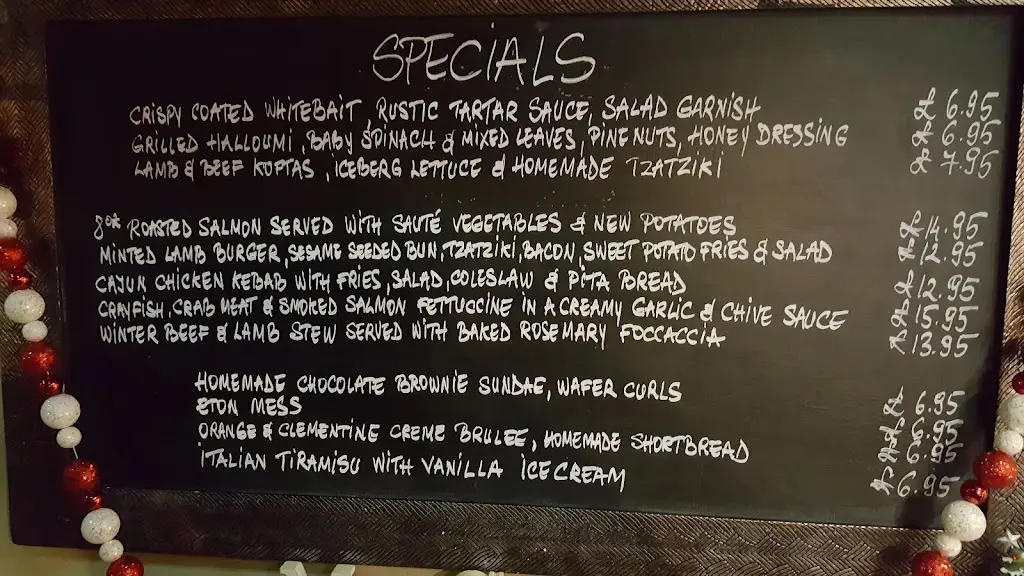 SPECIALS
CRISPY COATED WHITEBAIT, RUSTIC TARTAR SAUCE, SALAD GARNISH £ 6.95
GRILLED HALLOUMI, BABY SPINACH & MIXED LEAVES, PINE NUTS, HONEY DRESSING £ 6.95
LAMB & BEEF KOFTAS, ICEBERG LETTUCE & HOMEMADE TZATZIKI £ 7.95
ROASTED SALMON SERVED WITH SAUTÉ VEGETABLES & NEW POTATOES £ 14.95
MINTED LAMB BURGER, SESAME SEEDED BUN, TZATZIKI, BACON, SWEET POTATO FRIES & SALAD £ 12.95
CAJUN CHICKEN KEBAB WITH FRIES, SALAD, COLESLAW & PITA BREAD £ 12.95
CRAYFISH, CRAB MEAT & SMOKED SALMON FETTUCCINE IN A CREAMY GARLIC & CHIVE SAUCE £ 15.95
WINTER BEEF & LAMB STEW SERVED WITH BAKED ROSEMARY FOCCACCIA £ 13.95
HOMEMADE CHOCOLATE BROWNIE SUNDAE, WAFER CURLS £ 6.95
ETON MESS £ 6.95
ORANGE & CLEMENTINE CREME BRULEE, HOMEMADE SHORTBREAD £ 6.95
ITALIAN TIRAMISU WITH VANILLA ICE CREAM £ 6.95